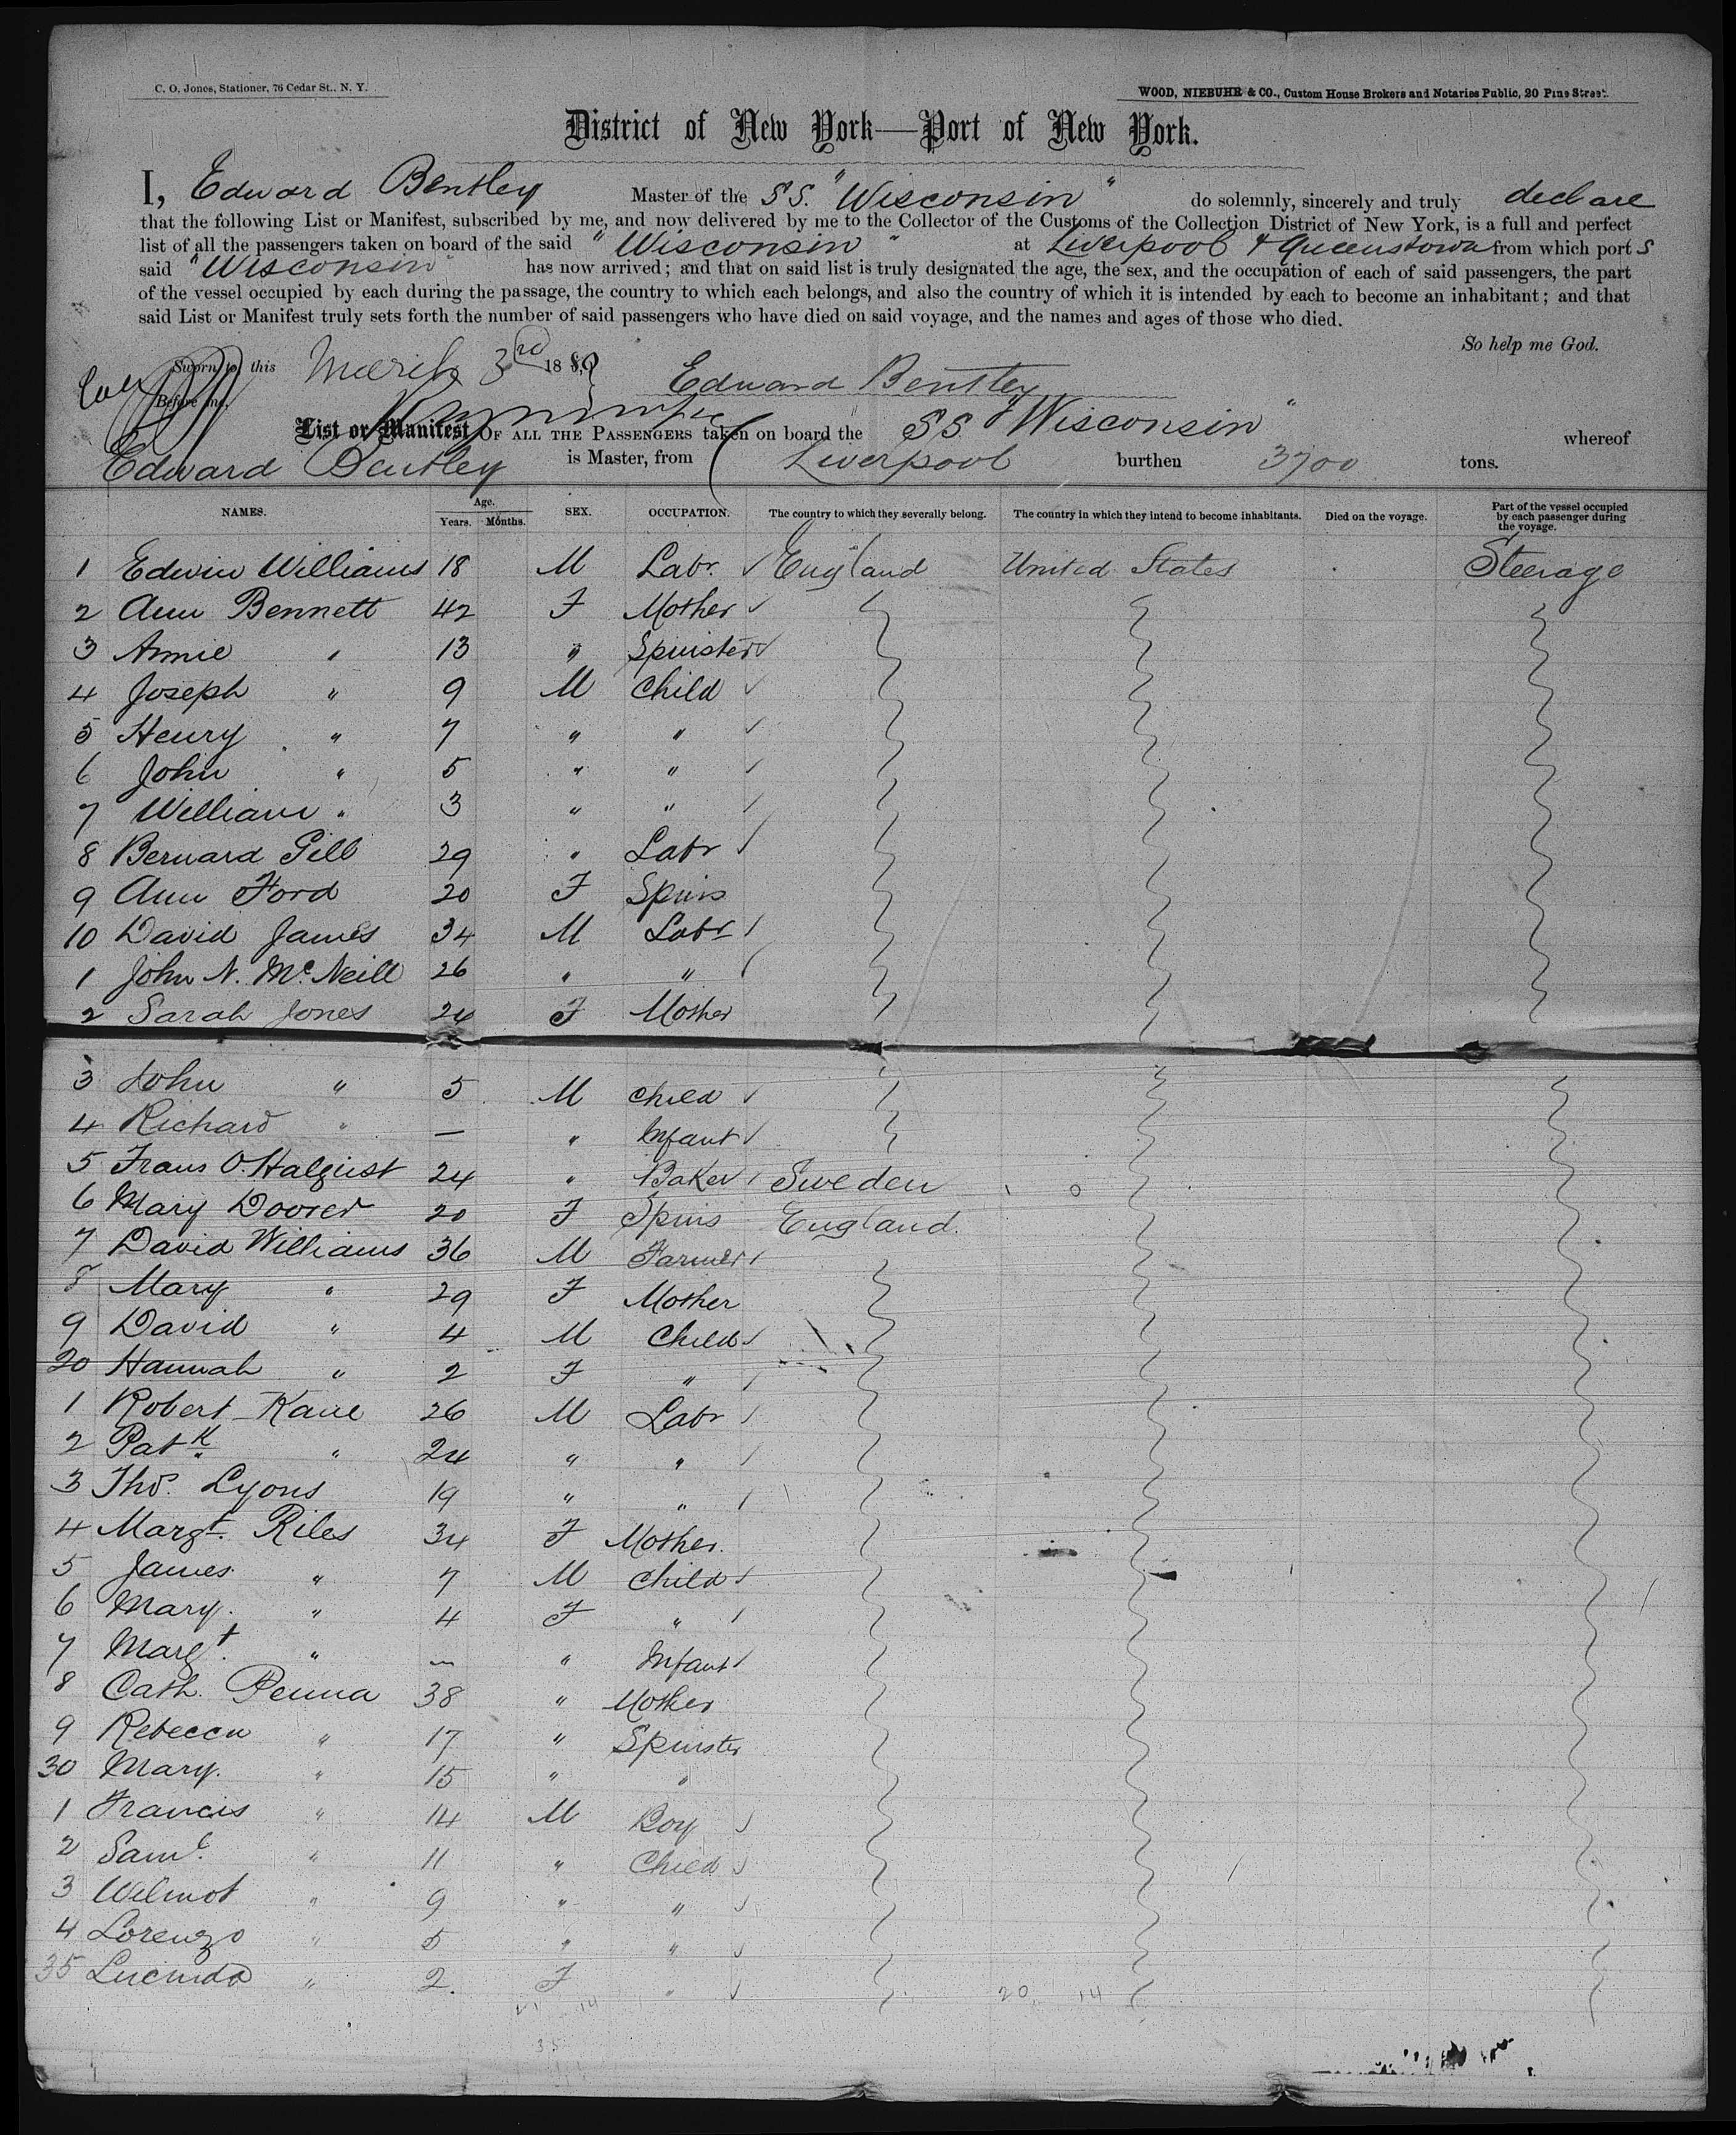 C. O. Jones, Stationer, 76 Cedar St., N. Y.
WOOD, NIEBUHR & CO., Custom House Brokers and Notaries Public, 20 Pine Street.
District of New York—Port of New York.
I, Edward Bentley Master of the SS. "Wisconsin" do solemnly, sincerely and truly declare
that the following List or Manifest, subscribed by me, and now delivered by me to the Collector of the Customs of the Collection District of New York, is a full and perfect
list of all the passengers taken on board of the said "Wisconsin" at Liverpool & Queenstown from which port s
said "Wisconsin" has now arrived; and that on said list is truly designated the age, the sex, and the occupation of each of said passengers, the part
of the vessel occupied by each during the passage, the country to which each belongs, and also the country of which it is intended by each to become an inhabitant; and that
said List or Manifest truly sets forth the number of said passengers who have died on said voyage, and the names and ages of those who died.
So help me God.
Sworn to this March 3rd 188
Edward Bentley
Before me,
List or Manifest OF ALL THE PASSENGERS taken on board the SS "Wisconsin" whereof
Edward Bentley is Master, from Liverpool burthen 3700 tons.
NAMES. Age. Years. Months. SEX. OCCUPATION. The country to which they severally belong. The country in which they intend to become inhabitants. Died on the voyage. Part of the vessel occupied by each passenger during the voyage.
1 Edwin Williams 18 M Labr. England United States Steerage
2 Ann Bennett 42 F Mother
3 Annie " 13 " Spinster
4 Joseph " 9 M Child
5 Henry " 7 " "
6 John " 5 " "
7 William " 3 " "
8 Bernard Gill 29 " Labr
9 Ann Ford 20 F Spins
10 David James 34 M Labr
1 John N. McNeill 26 " "
2 Sarah Jones 24 F Mother
3 John " 5 M Child
4 Richard " — " Infant
5 Frans O. Halquist 24 " Baker Sweden
6 Mary 20 F Spins England
7 David Williams 36 M Farmer
8 Mary " 29 F Mother
9 David " 4 M Child
20 Hannah " 2 F "
1 Robert Kane 26 M Labr
2 Patk " 24 " "
3 Thos. Lyons 19 " "
4 Margt. Riles 34 F Mother
5 James " 7 M Child
6 Mary " 4 F "
7 Margt. " — " Infant
8 Cath. Penna 38 " Mother
9 Rebecca " 17 " Spinster
30 Mary " 15 " "
1 Francis " 14 M Boy
2 Saml. " 11 " Child
3 Wilmot " 9 " "
4 Lorenzo " 5 " "
35 Lucinda " 2. F "
21 14 20 14
35